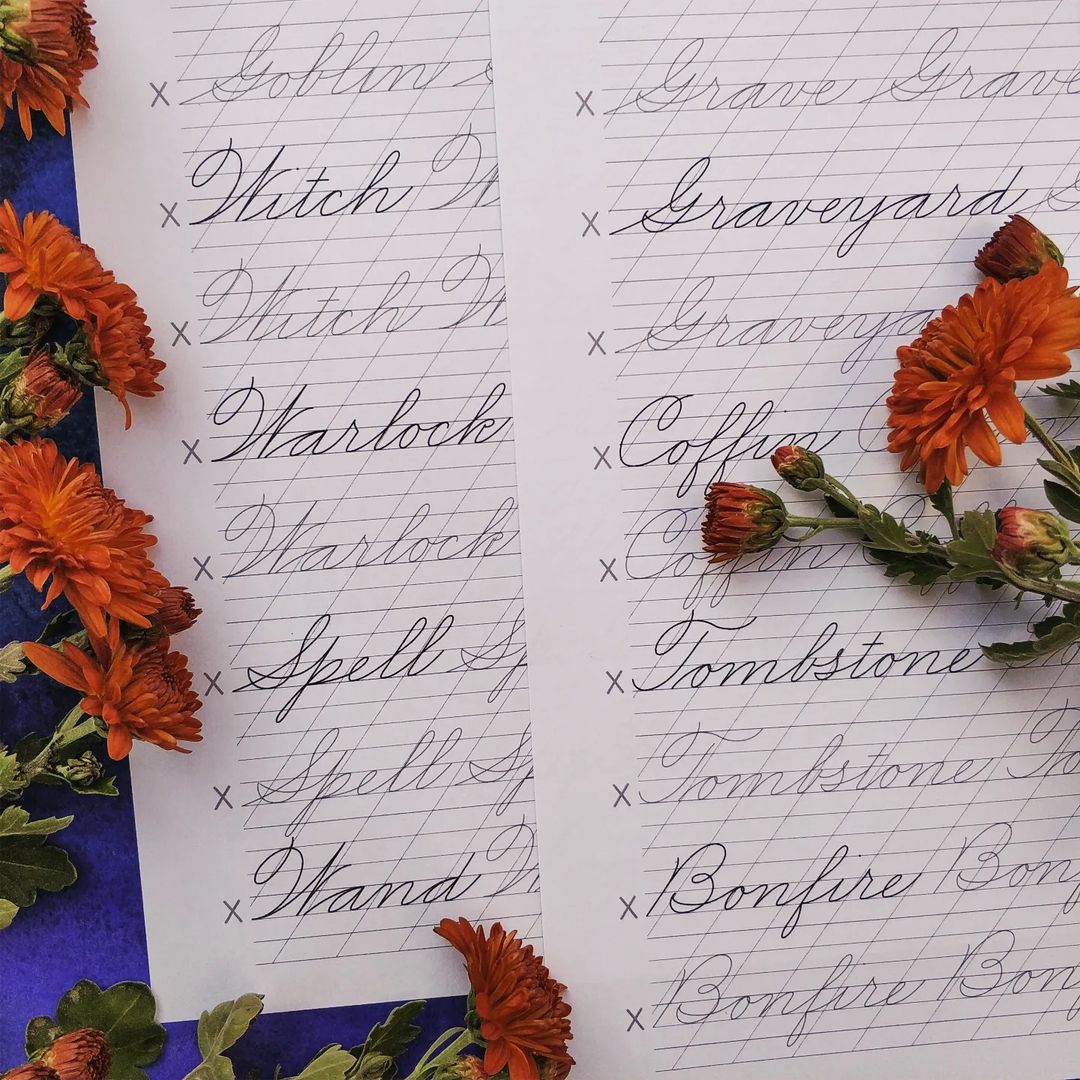 x Goblin
x Witch
x Witch
x Warlock
x Warlock
x Spell Sp
x Spell Sp
x Wand
x Grave Grave
x Graveyard
x Graveya
x Coffin
x Coffin
x Tombstone
x Tombstone To
x Bonfire Bonf
x Bonfire Bon